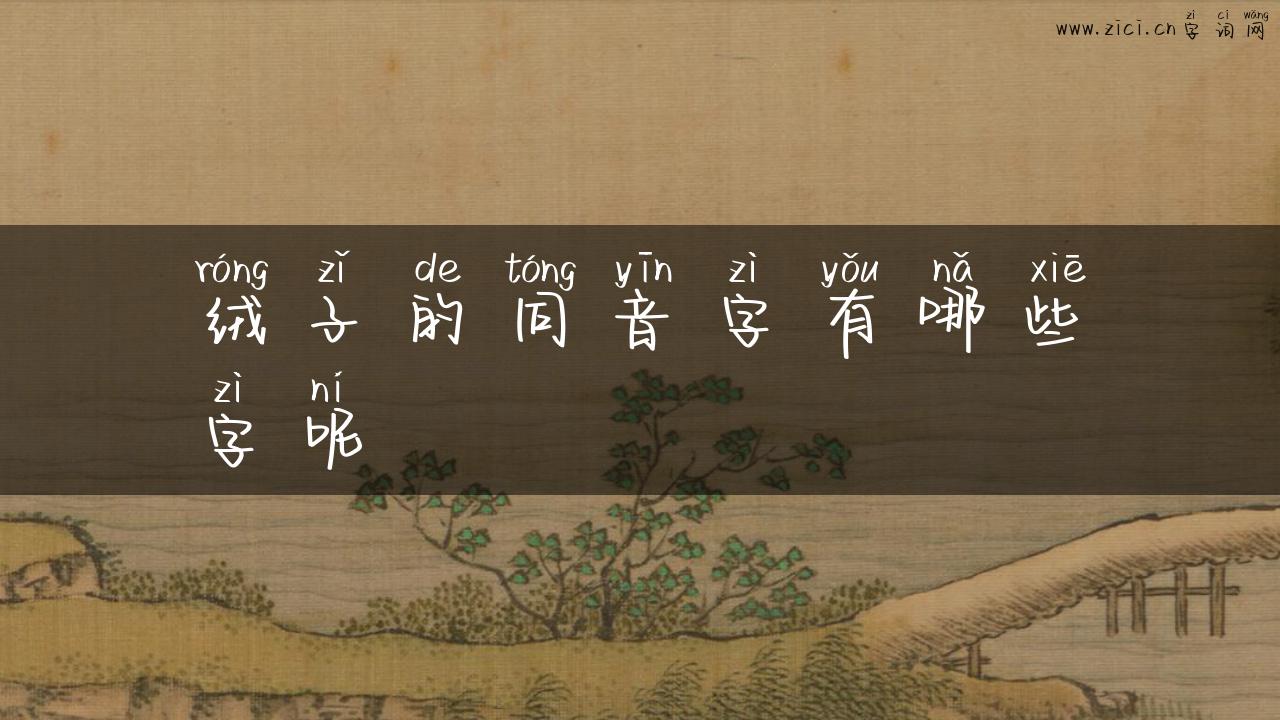 zì cí wǎng
www.zici.cn 字词网
róng zǐ de tóng yīn zì yǒu nǎ xiē
绒子的同音字有哪些
zì ní
字呢